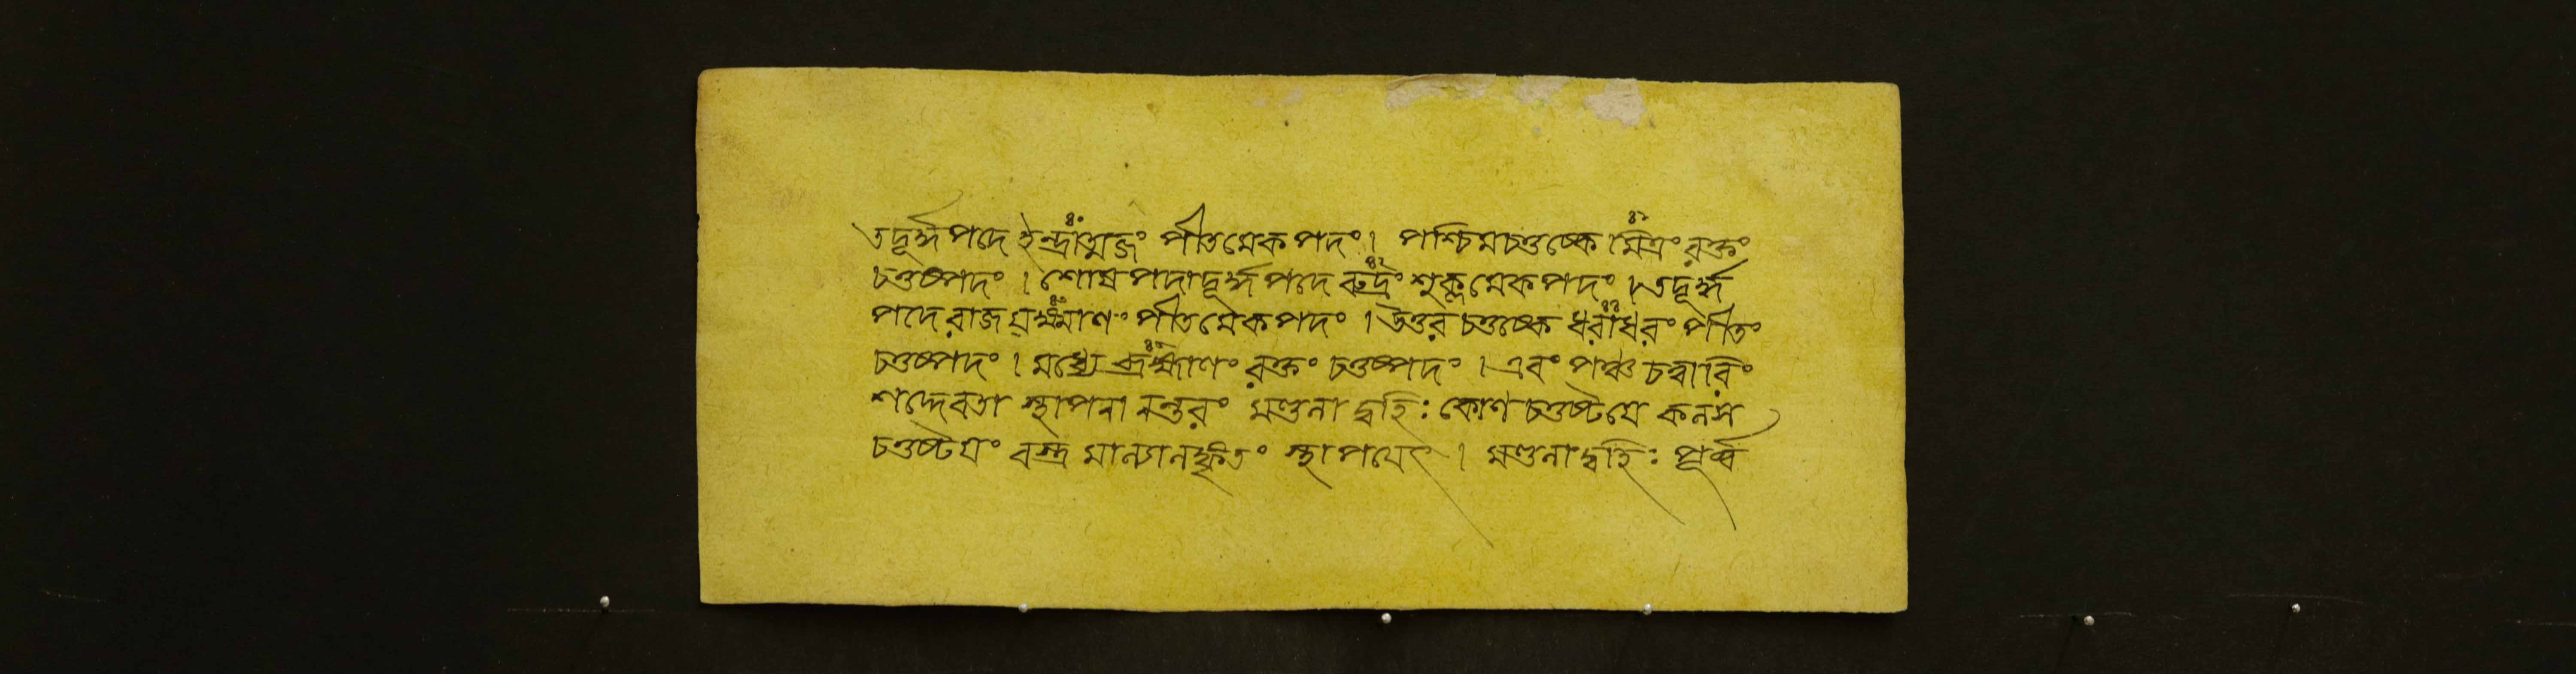 তদূর্দ্ধপদে ইন্দ্রাত্মজং৪০ পীতমেকপদং। পশ্চিমচতুষ্কে মিত্রং৪১ রক্তং
চতুষ্পদং। শোষপদাদূর্দ্ধপদে রুদ্রং৪২ শুক্লমেকপদং। তদূর্দ্ধ
পদে রাজযক্ষ্মাণং৪৩ পীতমেকপদং। উত্তরচতুষ্কে ধরাধরং৪৪ পীতং
চতুষ্পদং। মধ্যে ব্রহ্মাণং৪৫ রক্তং চতুষ্পদং। এবং পঞ্চচত্বারিং
শদ্দেবতা স্থাপনানন্তরং মণ্ডলাদ্বহিঃ কোণচতুষ্টয়ে কলস
চতুষ্টয়ং বস্ত্রমাল্যালঙ্কৃতং স্থাপয়েৎ। মণ্ডলাদ্বহিঃ পূর্ব্ব